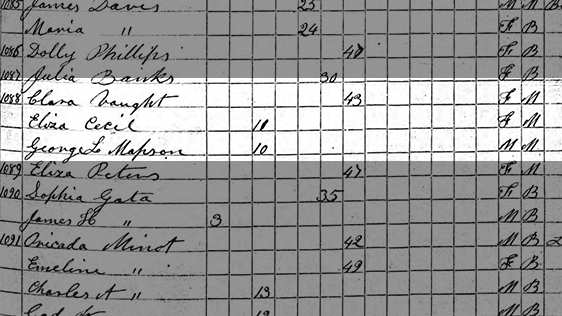 1085 James Davis 23 M M
Maria " 24 F B
1086 Dolly Phillips 40 F B
1087 Julia Banks 30 F B
1088 Clara Vaught 43 F M
Eliza Cecil 11 F M
George L Mapson 10 M M
1089 Eliza Peters 47 F M
1090 Sophia Gata 35 F B
James H " 3 M B
1091 Oricada Minot 42 M B
Emeline " 49 F B
Charles A " 13 M B
M B